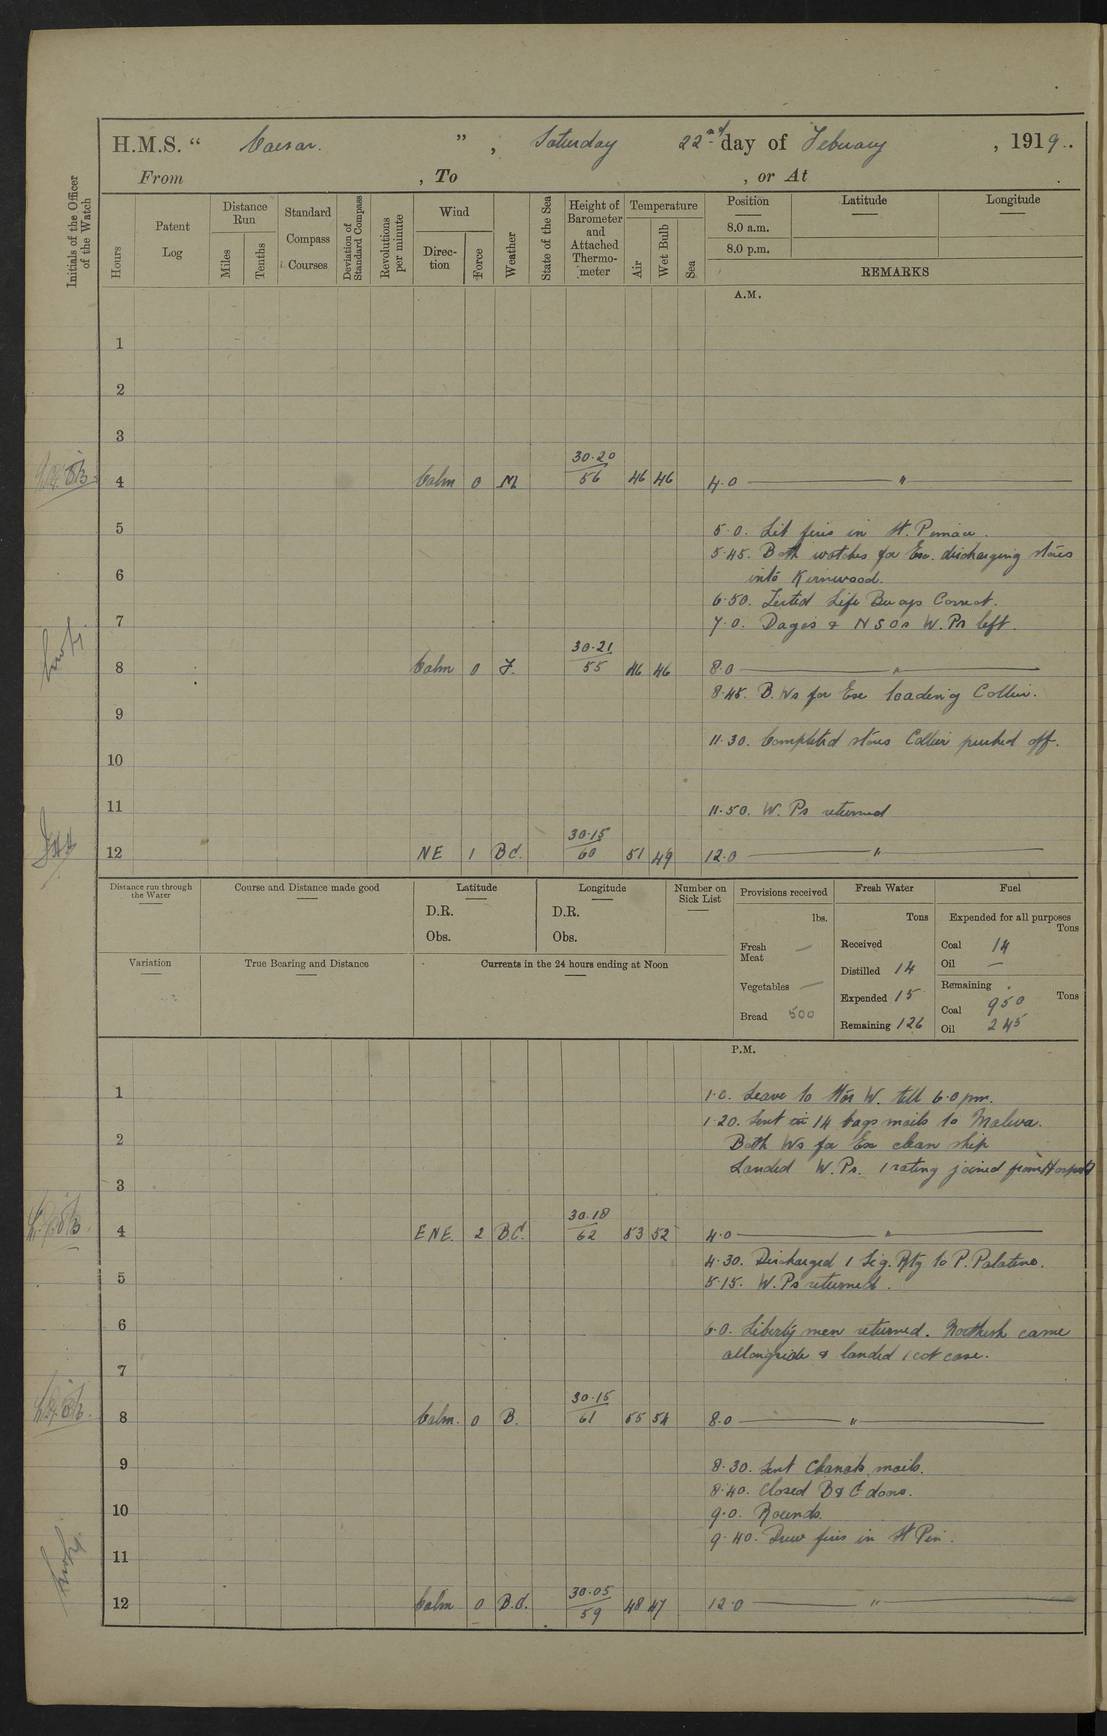 H.M.S. “ Caesar. ” , Saturday 22nd day of February , 1919..
From , To , or At .
Initials of the Officer of the Watch
Hours
Patent Log
Distance Run
Miles
Tenths
Standard Compass Courses
Deviation of Standard Compass
Revolutions per minute
Wind
Direction
Force
Weather
State of the Sea
Height of Barometer and Attached Thermometer
Temperature
Air
Wet Bulb
Sea
Position Latitude Longitude
8.0 a.m.
8.0 p.m.
REMARKS
A.M.
1
2
3
4 Calm 0 M 30.20 / 56 46 46 4.0 "
5 5.0. Lit fires in St. Pinnace.
5.45. Both watches for Exe. discharging stores
6 into Kirnwood.
6.50. Tested Life Buoys Correct.
7 7.0. Dagos & NSOs W.Ps left.
8 Calm 0 F. 30.21 / 55 46 46 8.0 "
8.45. B.Ws for Exe loading Collier.
9
11.30. Completed stores Collier pushed off.
10
11 11.50. W. Ps returned
12 NE 1 BC. 30.15 / 60 51 49 12.0 "
Distance run through the Water
Course and Distance made good
Latitude
D.R.
Obs.
Longitude
D.R.
Obs.
Number on Sick List
Provisions received
lbs.
Fresh Meat —
Vegetables —
Bread 500
Fresh Water
Tons
Received
Distilled 14
Expended 15
Remaining 126
Fuel
Expended for all purposes
Tons
Coal 14
Oil —
Remaining
Tons
Coal 950
Oil 245
Variation
True Bearing and Distance
Currents in the 24 hours ending at Noon
P.M.
1 1.0. Leave to Stbd W. till 6.0 pm.
1.20. Sent 14 bags mails to Malwa.
2 Both Ws for Exe clean ship
Landed W.Ps. 1 rating joined from Hospital
3
4 ENE. 2 B.C. 30.18 / 62 53 52 4.0 "
4.30. Discharged 1 Sig. Rtg to P. Palatino.
5 5.15. W.Ps returned.
6 6.0. Liberty men returned. came
allongside & landed 1 cot case.
7
8 Calm. 0 B. 30.15 / 61 55 54 8.0 "
9 8.30. Sent Chanak mails.
8.40. Closed B & C doors.
10 9.0. Rounds.
9.40. Drew fires in St Pin.
11
12 Calm 0 B.C. 30.05 / 59 48 47 12.0 "